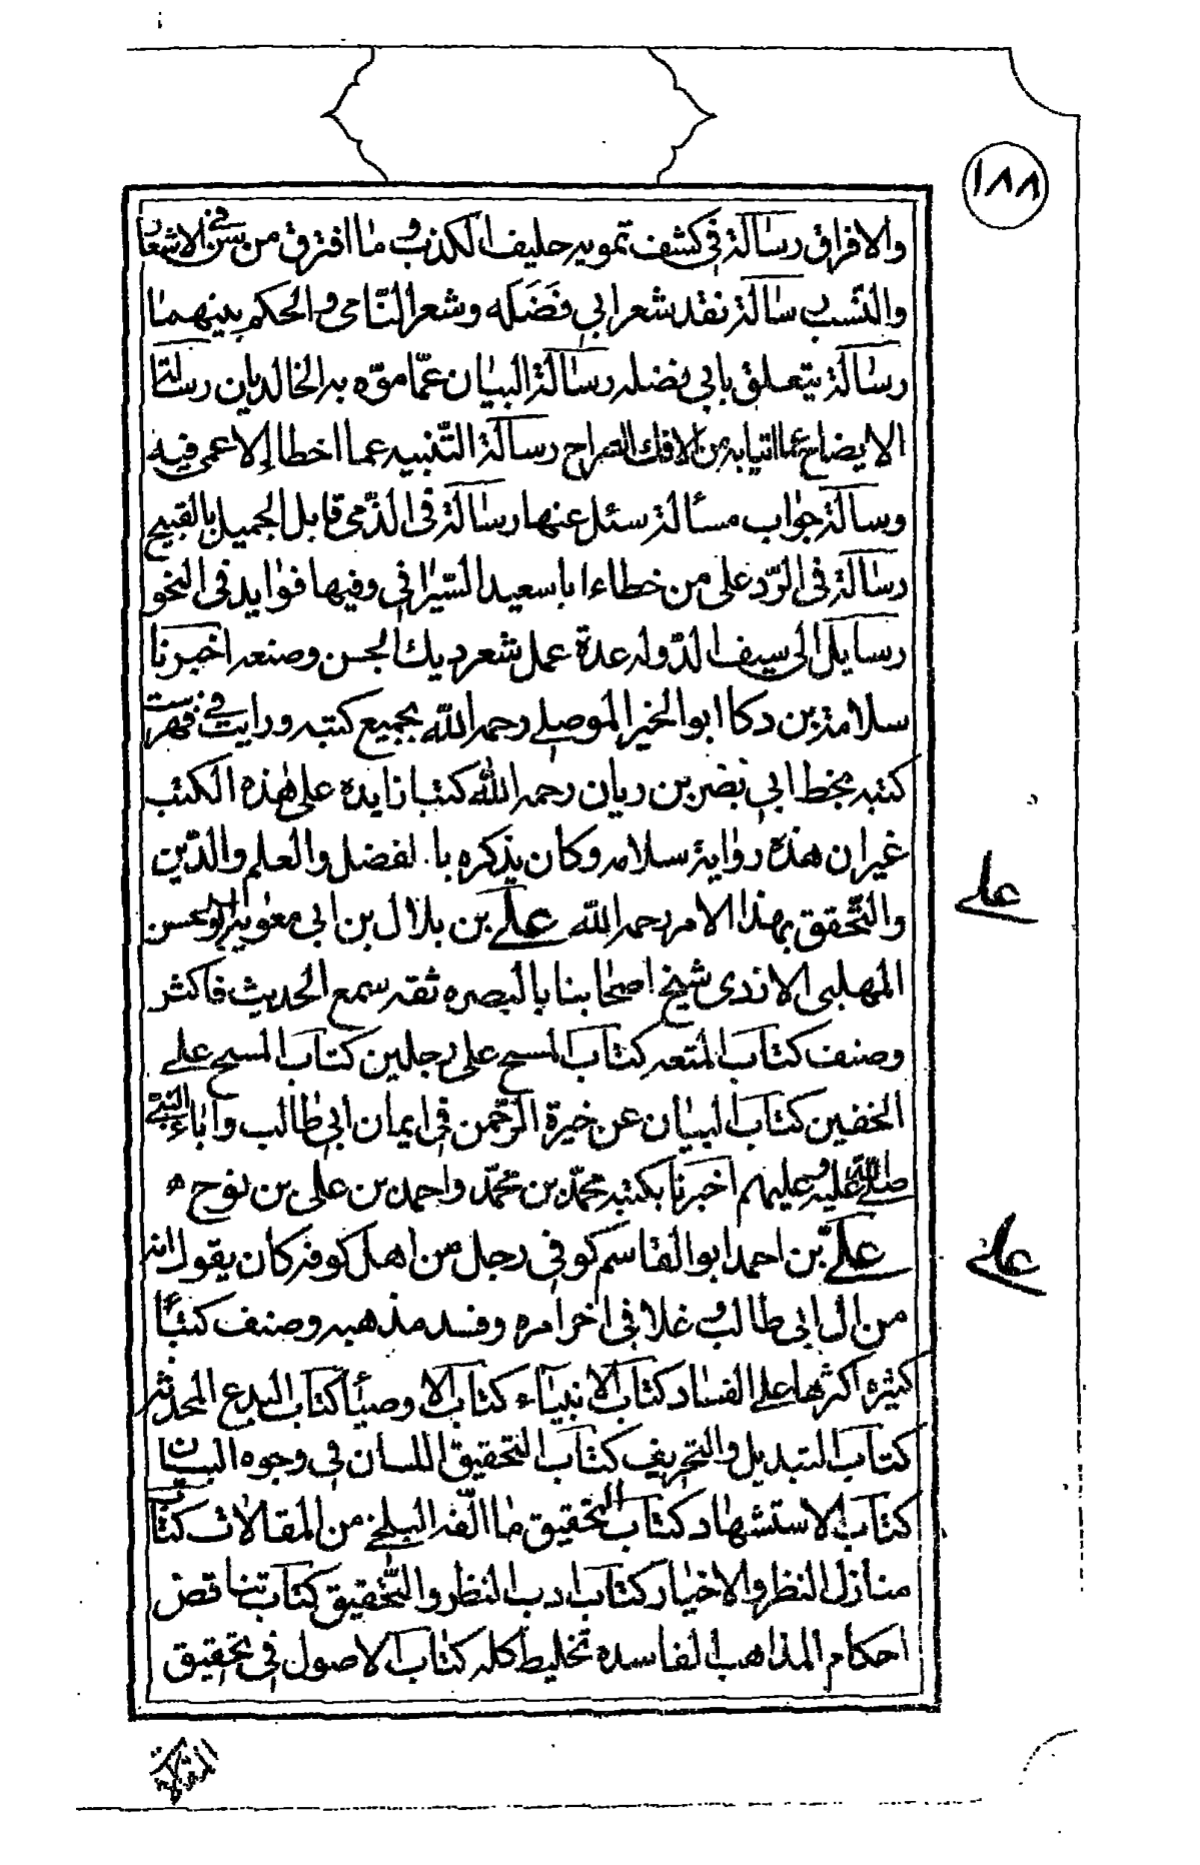 ١٨٨
والافراق رسالة في كشف تمويه حليف الكذب وما افترق من سن في الاشعار
والنسب رسالة نقد شعر ابي فضله وشعر النامي والحكم بينهما
رسالة يتعلق بابي نضله رسالة البيان عمّا موّه به الخالديان رسالتا
الايضاح عما اتيا به من الافك الصراح رسالة التّنبيه عما اخطا الاعمى فيه
وسالة جواب مسألة سئل عنها رسالة في الذمي قابل الجميل بالقبيح
رسالة في الرّد على من خطاء ابا سعيد السّيرافي وفيها فوايد في النحو
رسايل الى سيف الدّوله عدة عمل شعر ديك الجن وصنعه اخبرنا
سلامة بن دكا ابو الخير الموصلي رحمه اللّه بجميع كتبه ورايت في فهرست
كتبه بخط ابي نضر بن ريان رحمه اللّه كتبا زايدة على هذه الكتب
غير ان هذه رواية سلامه وكان يذكره بالفضل والعلم والدّين
والتّحقق بهذا الامر رحمه اللّه علي بن بلال بن ابي معوية ابو الحسن
المهلبي الازدي شيخ اصحابنا بالبصره ثقه سمع الحديث فاكثر
وصنف كتاب المتعه كتاب المسح على رجلين كتاب المسح على
الخفين كتاب البيان عن خيرة الرّحمن في ايمان ابي طالب واباء النبيّ
صلى اللّه عليه وعليهم اخبرنا بكتبه محمّد بن محمّد واحمد بن علي بن نوح ه
علي بن احمد ابو القاسم كوفي رجل من اهل كوفه كان يقول انه
من ال ابي طالب وغلا في اخر امره وفسد مذهبه وصنف كتبًا
كثيره اكثرها على الفساد كتاب الانبياء كتاب الاوصيا كتاب البدع المحدثه
كتاب التبديل والتحريف كتاب التحقيق اللسان في وجوه البيان
كتاب الاستشهاد كتاب التحقيق ما الّفه البلخي من المقالات كتاب
منازل النظر والاختيار كتاب ادب النظر والتّحقيق كتاب تناقض
احكام المذاهب الفاسده تخليط كله كتاب الاصول في تحقيق
علي
علي
المقالات